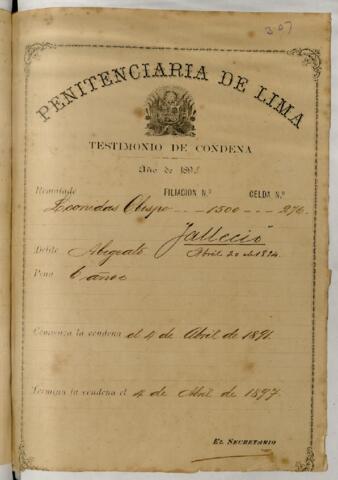 307
PENITENCIARIA DE LIMA
TESTIMONIO DE CONDENA
Año de 189
Rematado FILIACION N.º CELDA N.º
Leonidas Obispo 1500 276
Falleció
Delito Abigeato Abril 20 de 1894
Pena 6 años
Comienza la condena el 4 de Abril de 1891.
Termina la condena el 4 de Abril de 1897.
EL SECRETARIO